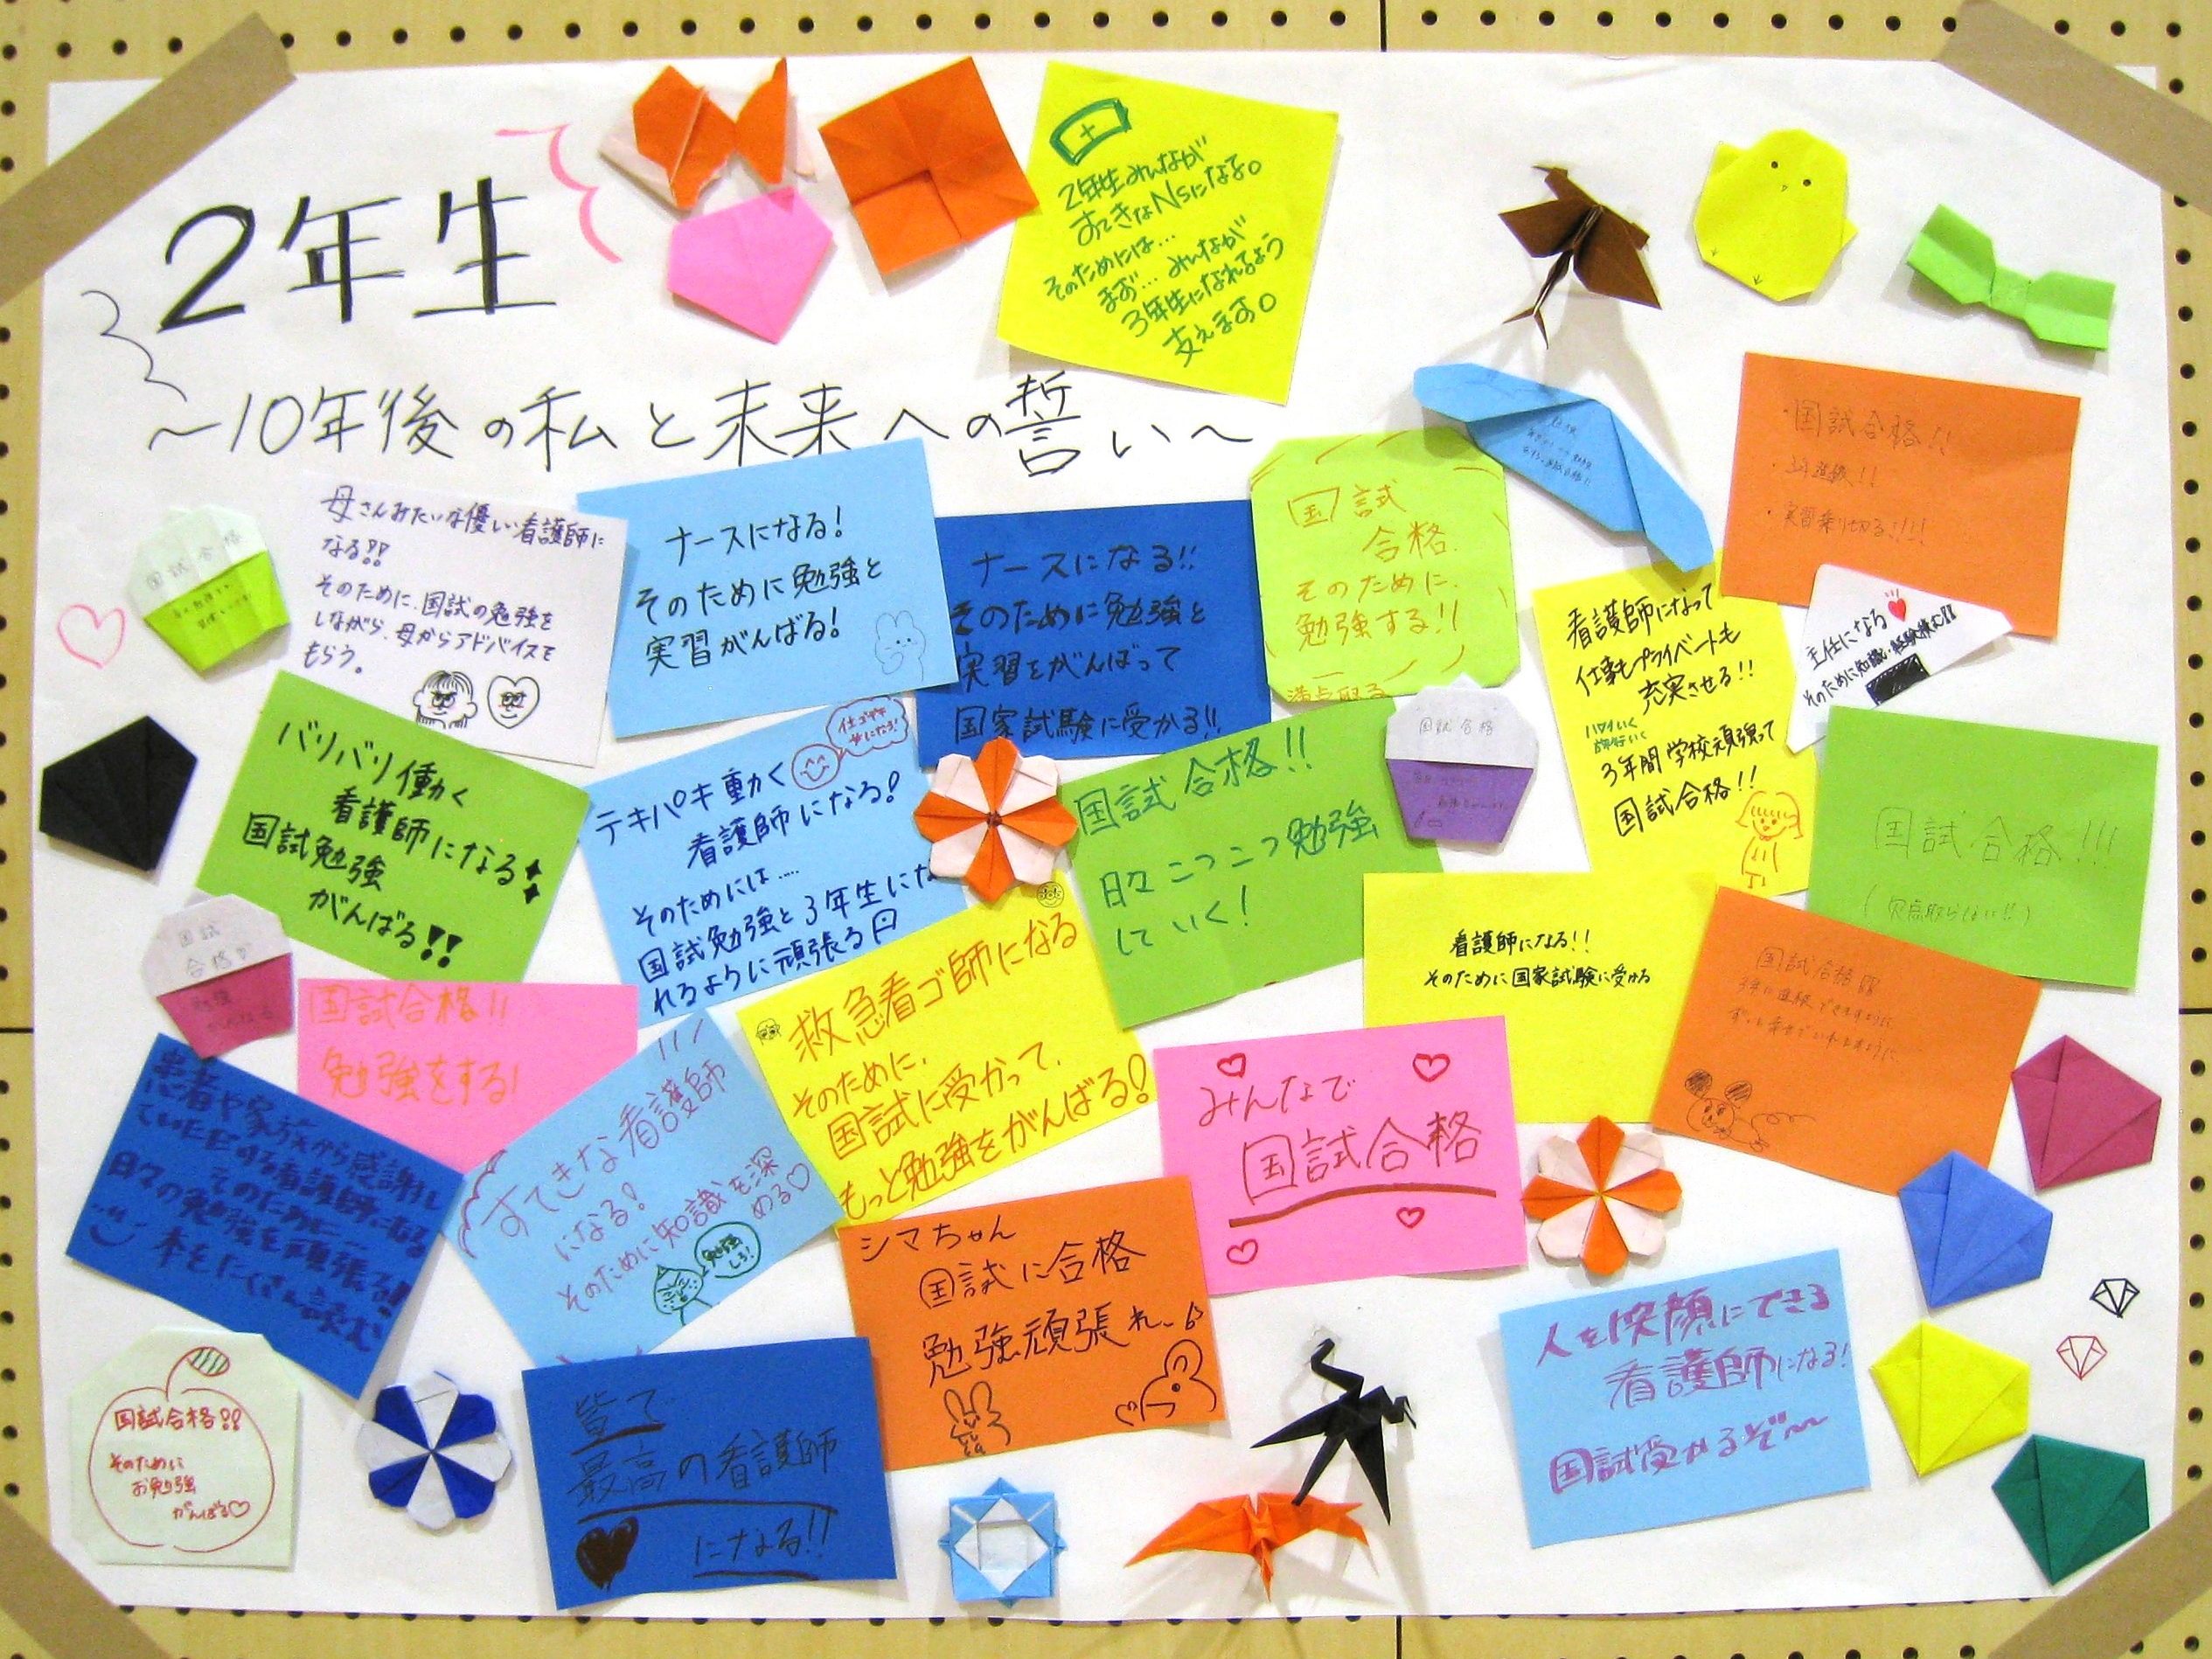 2年生
～10年後の私と未来への誓い～
2年生みんなが
すてきなNsになる。
そのためには…
まず…みんなが
3年生になれるよう
支えます。
国試合格!!
実習乗り切る!!!!
母さんみたいな優しい看護師に
なる!!
そのために、国試の勉強を
しながら、母からアドバイスを
もらう。
ナースになる!
そのために勉強と
実習がんばる!
ナースになる!!
そのために勉強と
実習をがんばって
国家試験に受かる!!
国試
合格.
そのために.
勉強する!!
満点取る
看護師になって
仕事もプライベートも
充実させる!!
ハワイいく
旅行いく
3年間学校頑張って
国試合格!!
主任になる
そのために知識・経験積む!!
国試合格
バリバリ働く
看護師になる
国試勉強
がんばる!!
テキパキ動く
看護師になる!
そのためには……
国試勉強と3年生にな
れるように頑張る
国試合格!!
日々こつこつ勉強
していく!
国試合格
国試合格!!!
(欠点取らない!!)
看護師になる!!
そのために国家試験に受かる
国試合格!!
国試
合格
勉強
がんばる
国試合格!!
勉強をする!
救急看ゴ師になる
そのために、
国試に受かって、
もっと勉強をがんばる!
みんなで
国試合格
患者や家族から感謝し
ていただける看護師になる
そのために…
日々の勉強を頑張る!
本をたくさん読む
すてきな看護師
になる!
そのために知識を深
める♡
勉強しろ!
シマちゃん
国試に合格
勉強頑張れ
人を笑顔にできる
看護師になる!
国試受かるぞ～
国試合格!!
そのために
お勉強
がんばる♡
皆で
最高の看護師
になる!!